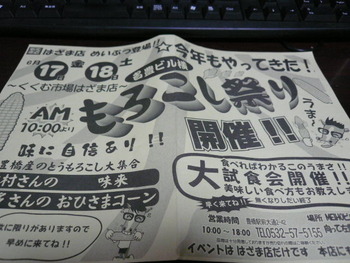 はざま店 めいぶつ登場!!
今年もやってきた！
6月17金 18土
名農ビル横
～くくむ市場はざま店～
もろこし祭り
開催!!
AM
10:00より
うまっ
味に自信あり!!
豊橋産のとうもろこし大集合
村さんの 味来
さんの おひさまコーン
数に限りがありますので
早めに来てね!!
食べればわかるこのうまさ!!
大試食会開催!!
美味しい食べ方もお教えし
～早く来てね!!～ 無くなりしだい終了
営業時間
10:00～18:00
TEL0532-57-5155
イベントは はざま店だけです